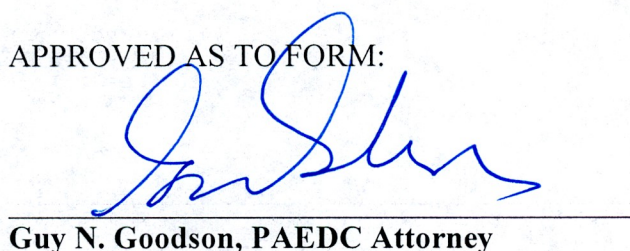 APPROVED AS TO FORM:
Guy N. Goodson, PAEDC Attorney